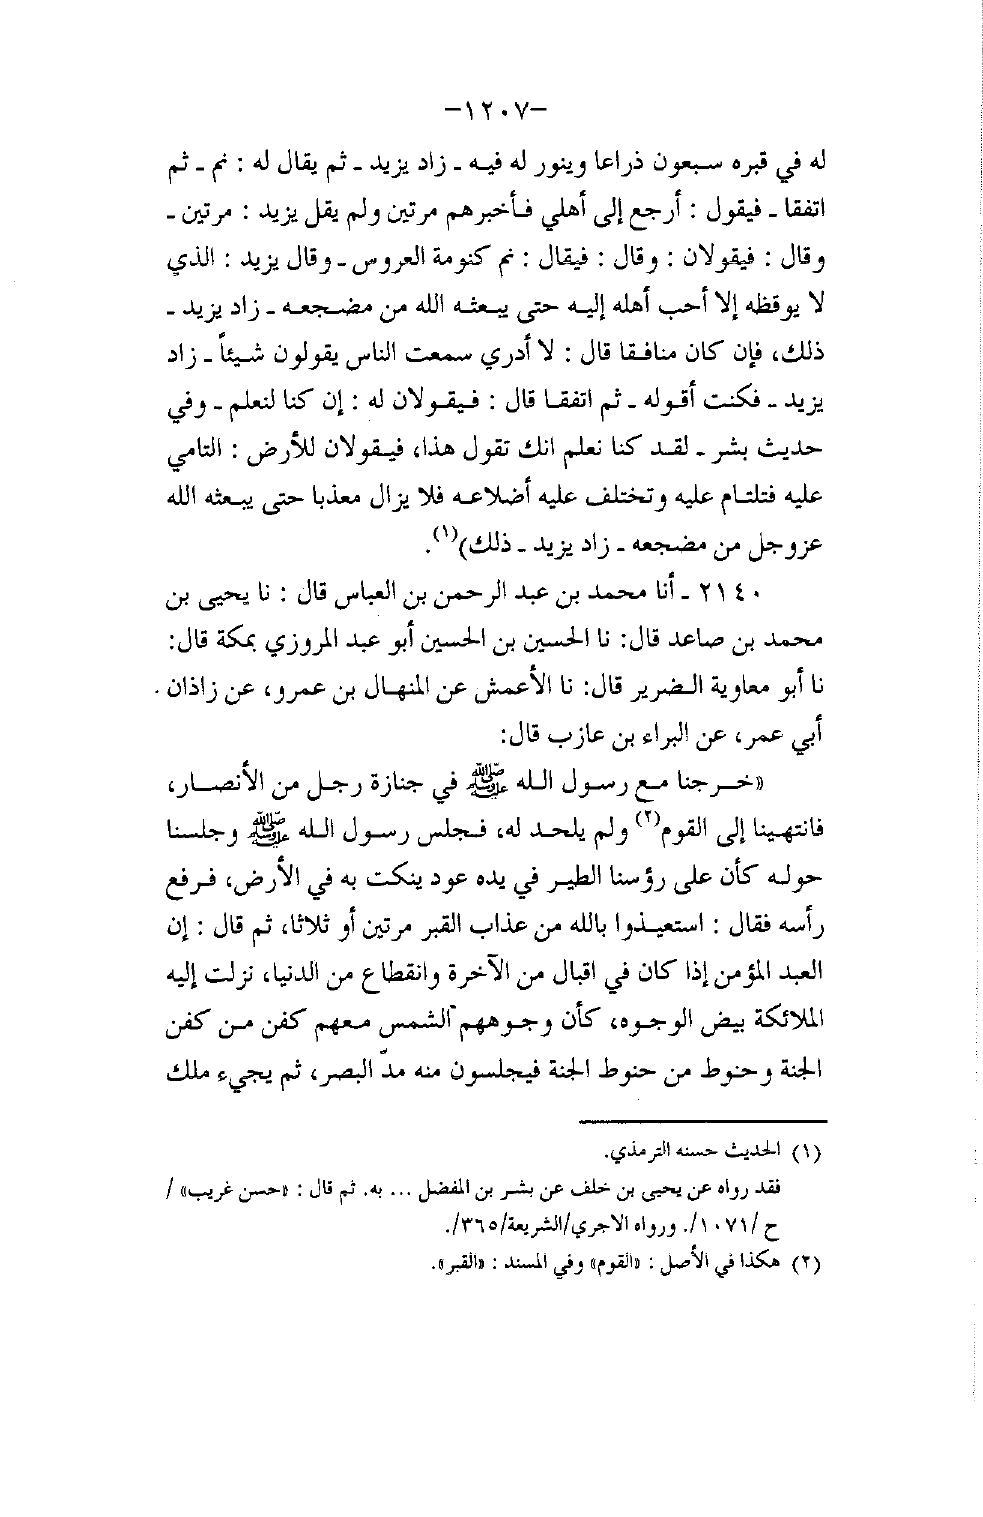 -١٢٠٧-
له في قبره سبعون ذراعا وينور له فيه ـ زاد يزيد ـ ثم يقال له : نم ـ ثم
اتفقا ـ فيقول : أرجع إلى أهلي فأخبرهم مرتين ولم يقل يزيد : مرتين ـ
وقال : فيقولان : وقال : فيقال : نم كنومة العروس ـ وقال يزيد : الذي
لا يوقظه إلا أحب أهله إليه حتى يبعثه الله من مضجعه ـ زاد يزيد ـ
ذلك، فإن كان منافقا قال : لا أدري سمعت الناس يقولون شيئاً ـ زاد
يزيد ـ فكنت أقوله ـ ثم اتفقا قال : فيقولان له : إن كنا لنعلم ـ وفي
حديث بشر ـ لقد كنا نعلم انك تقول هذا، فيقولان للأرض : التامي
عليه فتلتام عليه وتختلف عليه أضلاعه فلا يزال معذبا حتى يبعثه الله
عزوجل من مضجعه ـ زاد يزيد ـ ذلك)(١).
٢١٤٠ ـ أنا محمد بن عبد الرحمن بن العباس قال : نا يحيى بن
محمد بن صاعد قال: نا الحسين بن الحسين أبو عبد المروزي بمكة قال:
نا أبو معاوية الضرير قال: نا الأعمش عن المنهال بن عمرو، عن زاذان
أبي عمر، عن البراء بن عازب قال:
«خرجنا مع رسول الله ﷺ في جنازة رجل من الأنصار،
فانتهينا إلى القوم(٢) ولم يلحد له، فجلس رسول الله ﷺ وجلسنا
حوله كأن على رؤسنا الطير في يده عود ينكت به في الأرض، فرفع
رأسه فقال : استعيذوا بالله من عذاب القبر مرتين أو ثلاثا، ثم قال : إن
العبد المؤمن إذا كان في اقبال من الآخرة وانقطاع من الدنيا، نزلت إليه
الملائكة بيض الوجوه، كأن وجوههم الشمس معهم كفن من كفن
الجنة وحنوط من حنوط الجنة فيجلسون منه مدّ البصر، ثم يجيء ملك
(١) الحديث حسنه الترمذي.
فقد رواه عن يحيى بن خلف عن بشر بن المفضل ... به. ثم قال : «حسن غريب» /
ح /١٠٧١/. ورواه الاجري/الشريعة/٣٦٥/.
(٢) هكذا في الأصل : «القوم» وفي المسند : «القبر».